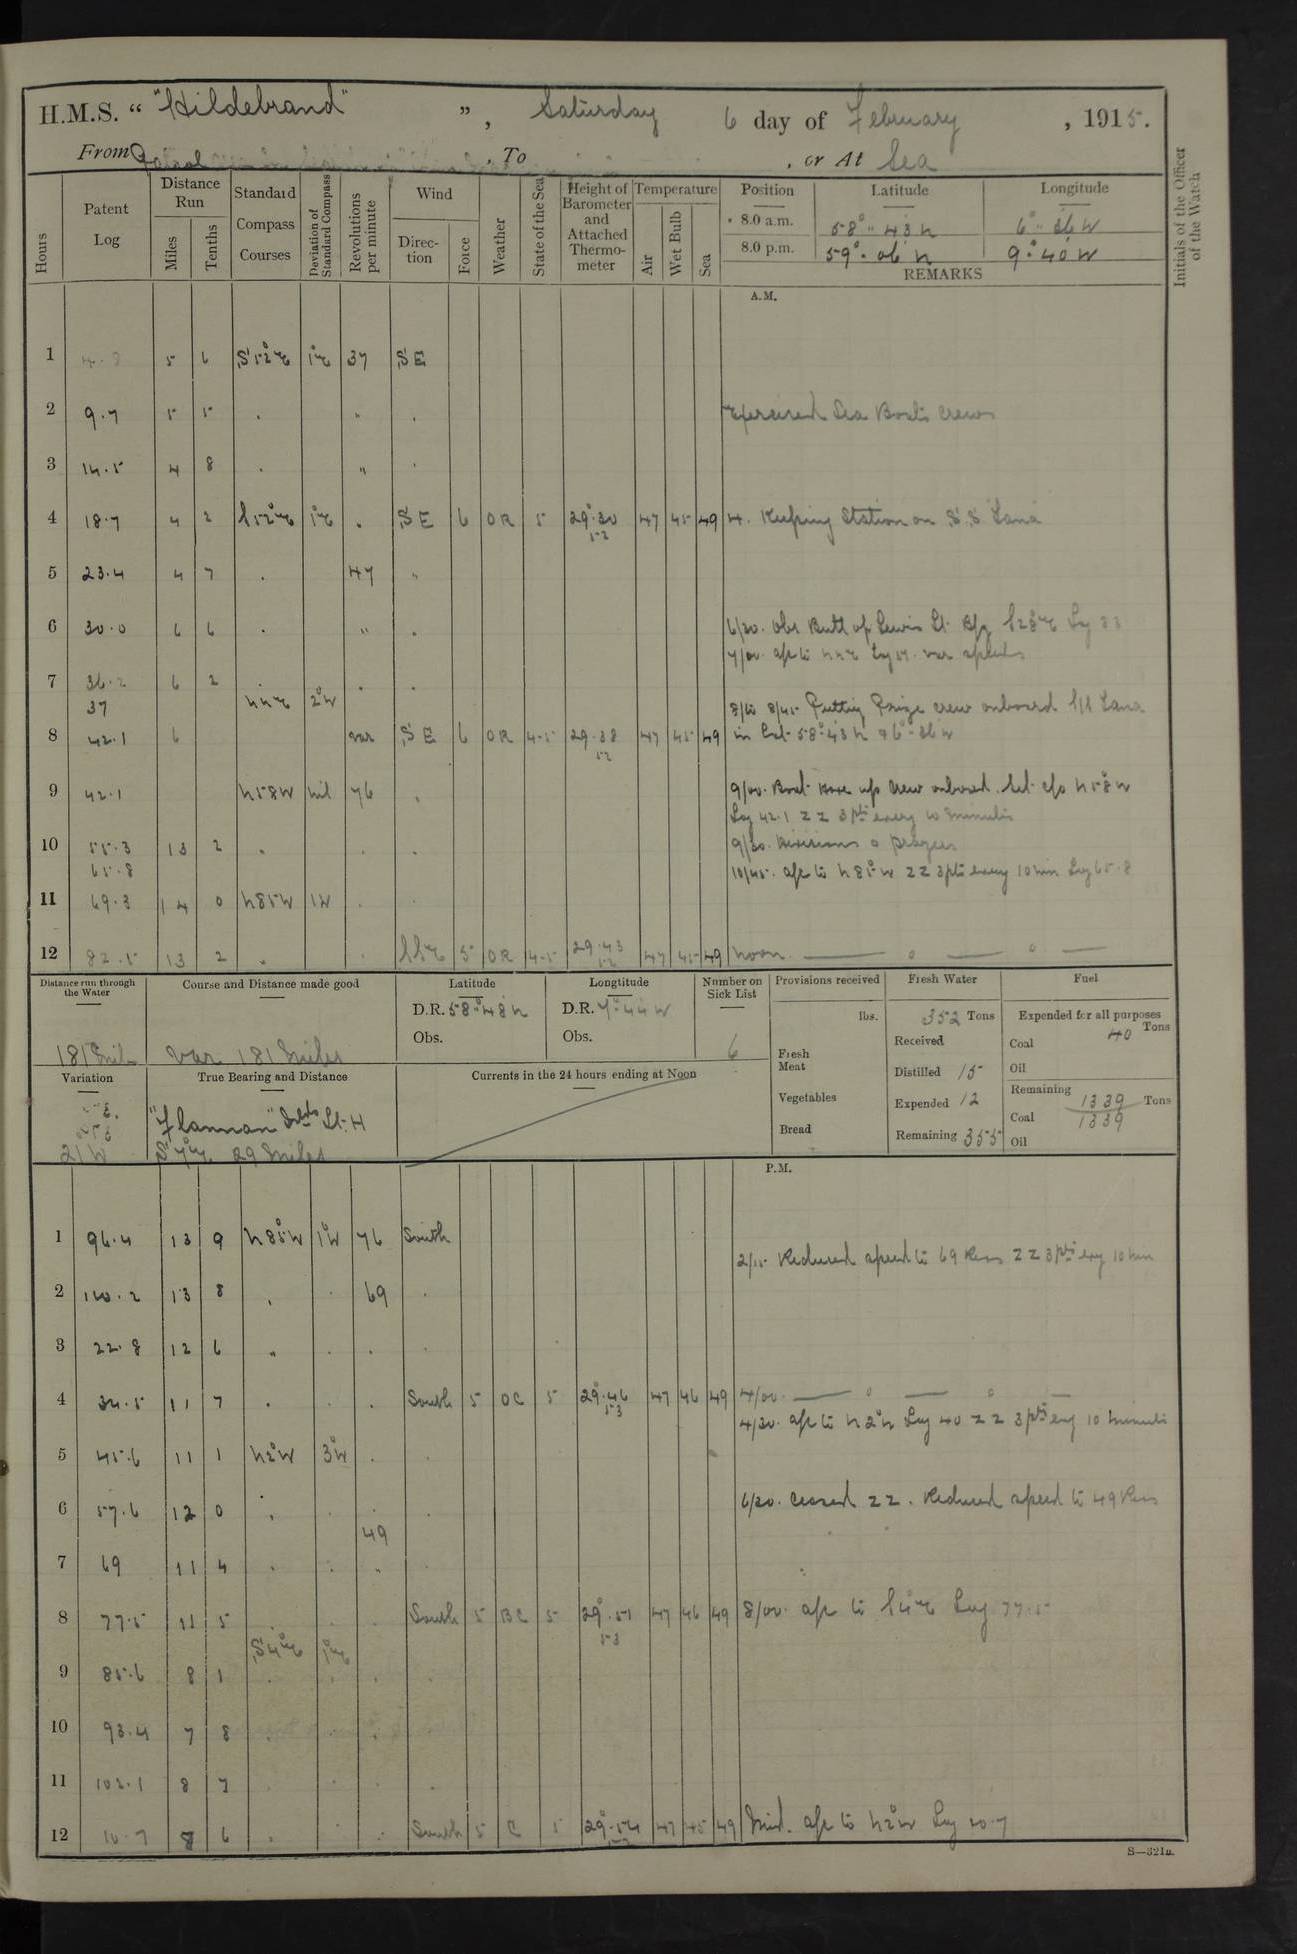 H.M.S. " "Hildebrand" ", Saturday 6 day of February, 1915.
From Patrol , To , or At Sea
Hours
Patent Log
Distance Run
Miles
Tenths
Standard Compass Courses
Deviation of Standard Compass
Revolutions per minute
Wind
Direction
Force
Weather
State of the Sea
Height of Barometer and Attached Thermometer
Temperature
Air
Wet Bulb
Sea
Position Latitude Longitude
8.0 a.m. 58° 43 N 6° 36 W
8.0 p.m. 59° 06 N 9° 40 W
REMARKS
Initials of the Officer of the Watch
A.M.
1 5 6 S 52° E 1° E 37 SE
2 9.7 5 5 . " . Exercised Sea Boats crews
3 14.5 4 8 . " .
4 18.7 4 2 S 52° E 1° E . SE 6 OR 5 29.30 52 47 45 49 4. Keeping Station on S.S. Lana
5 23.4 4 7 . 47 "
6 30.0 6 6 . " . 6/20. Obs Butt of Lewis Lt.
7 36.2 6 2 . . .
37 NNE 2° W
8 42.1 6 var SE 6 OR 4-5 29.38 52 47 45 49
8/45 Putting Prize crew onboard S/S Lana
in Lat 58° 43 N 6° 36 W
9 42.1 N 58 W nil 76 . 9/00. Boat up crew onboard. Set c/o N 58° W
Log 42.1 ZZ 3 pts every 10 minutes
10 55.3 13 2 . . . 9/30. Divisions & prayers
65.8 10/45. a/c to N 85° W ZZ 3 pts every 10 min Log 65.8
11 69.3 14 0 N 85 W 1 W . .
12 82.5 13 2 . . SSE 5 OR 4-5 29.43 52 47 45 49 Noon
Distance run through the Water
181 Mil
Course and Distance made good
Var 181 Miles
Latitude
D.R. 58° 48 N
Obs.
Longtitude
D.R. 7° 44 W
Obs.
Number on Sick List
6
Provisions received
lbs.
Fresh Meat
Vegetables
Bread
Fresh Water
352 Tons
Received
Distilled 15
Expended 12
Remaining 355
Fuel
Expended for all purposes
Coal 40 Tons
Oil
Remaining
1339 Tons
Coal 1339
Oil
Variation
21 W
True Bearing and Distance
"Flannan" Islds Lt. H
S 7° E 29 Miles
Currents in the 24 hours ending at Noon
P.M.
1 96.4 13 9 N 85° W 1° W 76 South
2/15 Reduced speed to 69 Revs ZZ 3 pts evy 10 min
2 110.2 13 8 . . 69 .
3 22.8 12 6 " . . .
4 34.5 11 7 . . . South 5 OC 5 29.46 53 47 46 49 4/00.
4/30. a/c to N 2° Log 40 ZZ 3 pts evy 10 minuts
5 45.6 11 1 N 2° W 3° W . .
6 57.6 12 0 . . . . 6/20. Ceased ZZ. Reduced speed to 49 Revs
49
7 69 11 4 . . " .
8 77.5 11 5 . . . South 5 BC 5 29.51 53 47 46 49 8/00. a/c to S 4° E Log 77.5
S 4° E 1° E
9 85.6 8 1 . . . .
10 93.4 7 8 . . .
11 102.1 8 7 . . . .
12 10.7 8 6 . . . South 5 C 5 29.54 47 45 49 Mid. a/c to N 2° W Log 10.7
S—321a.